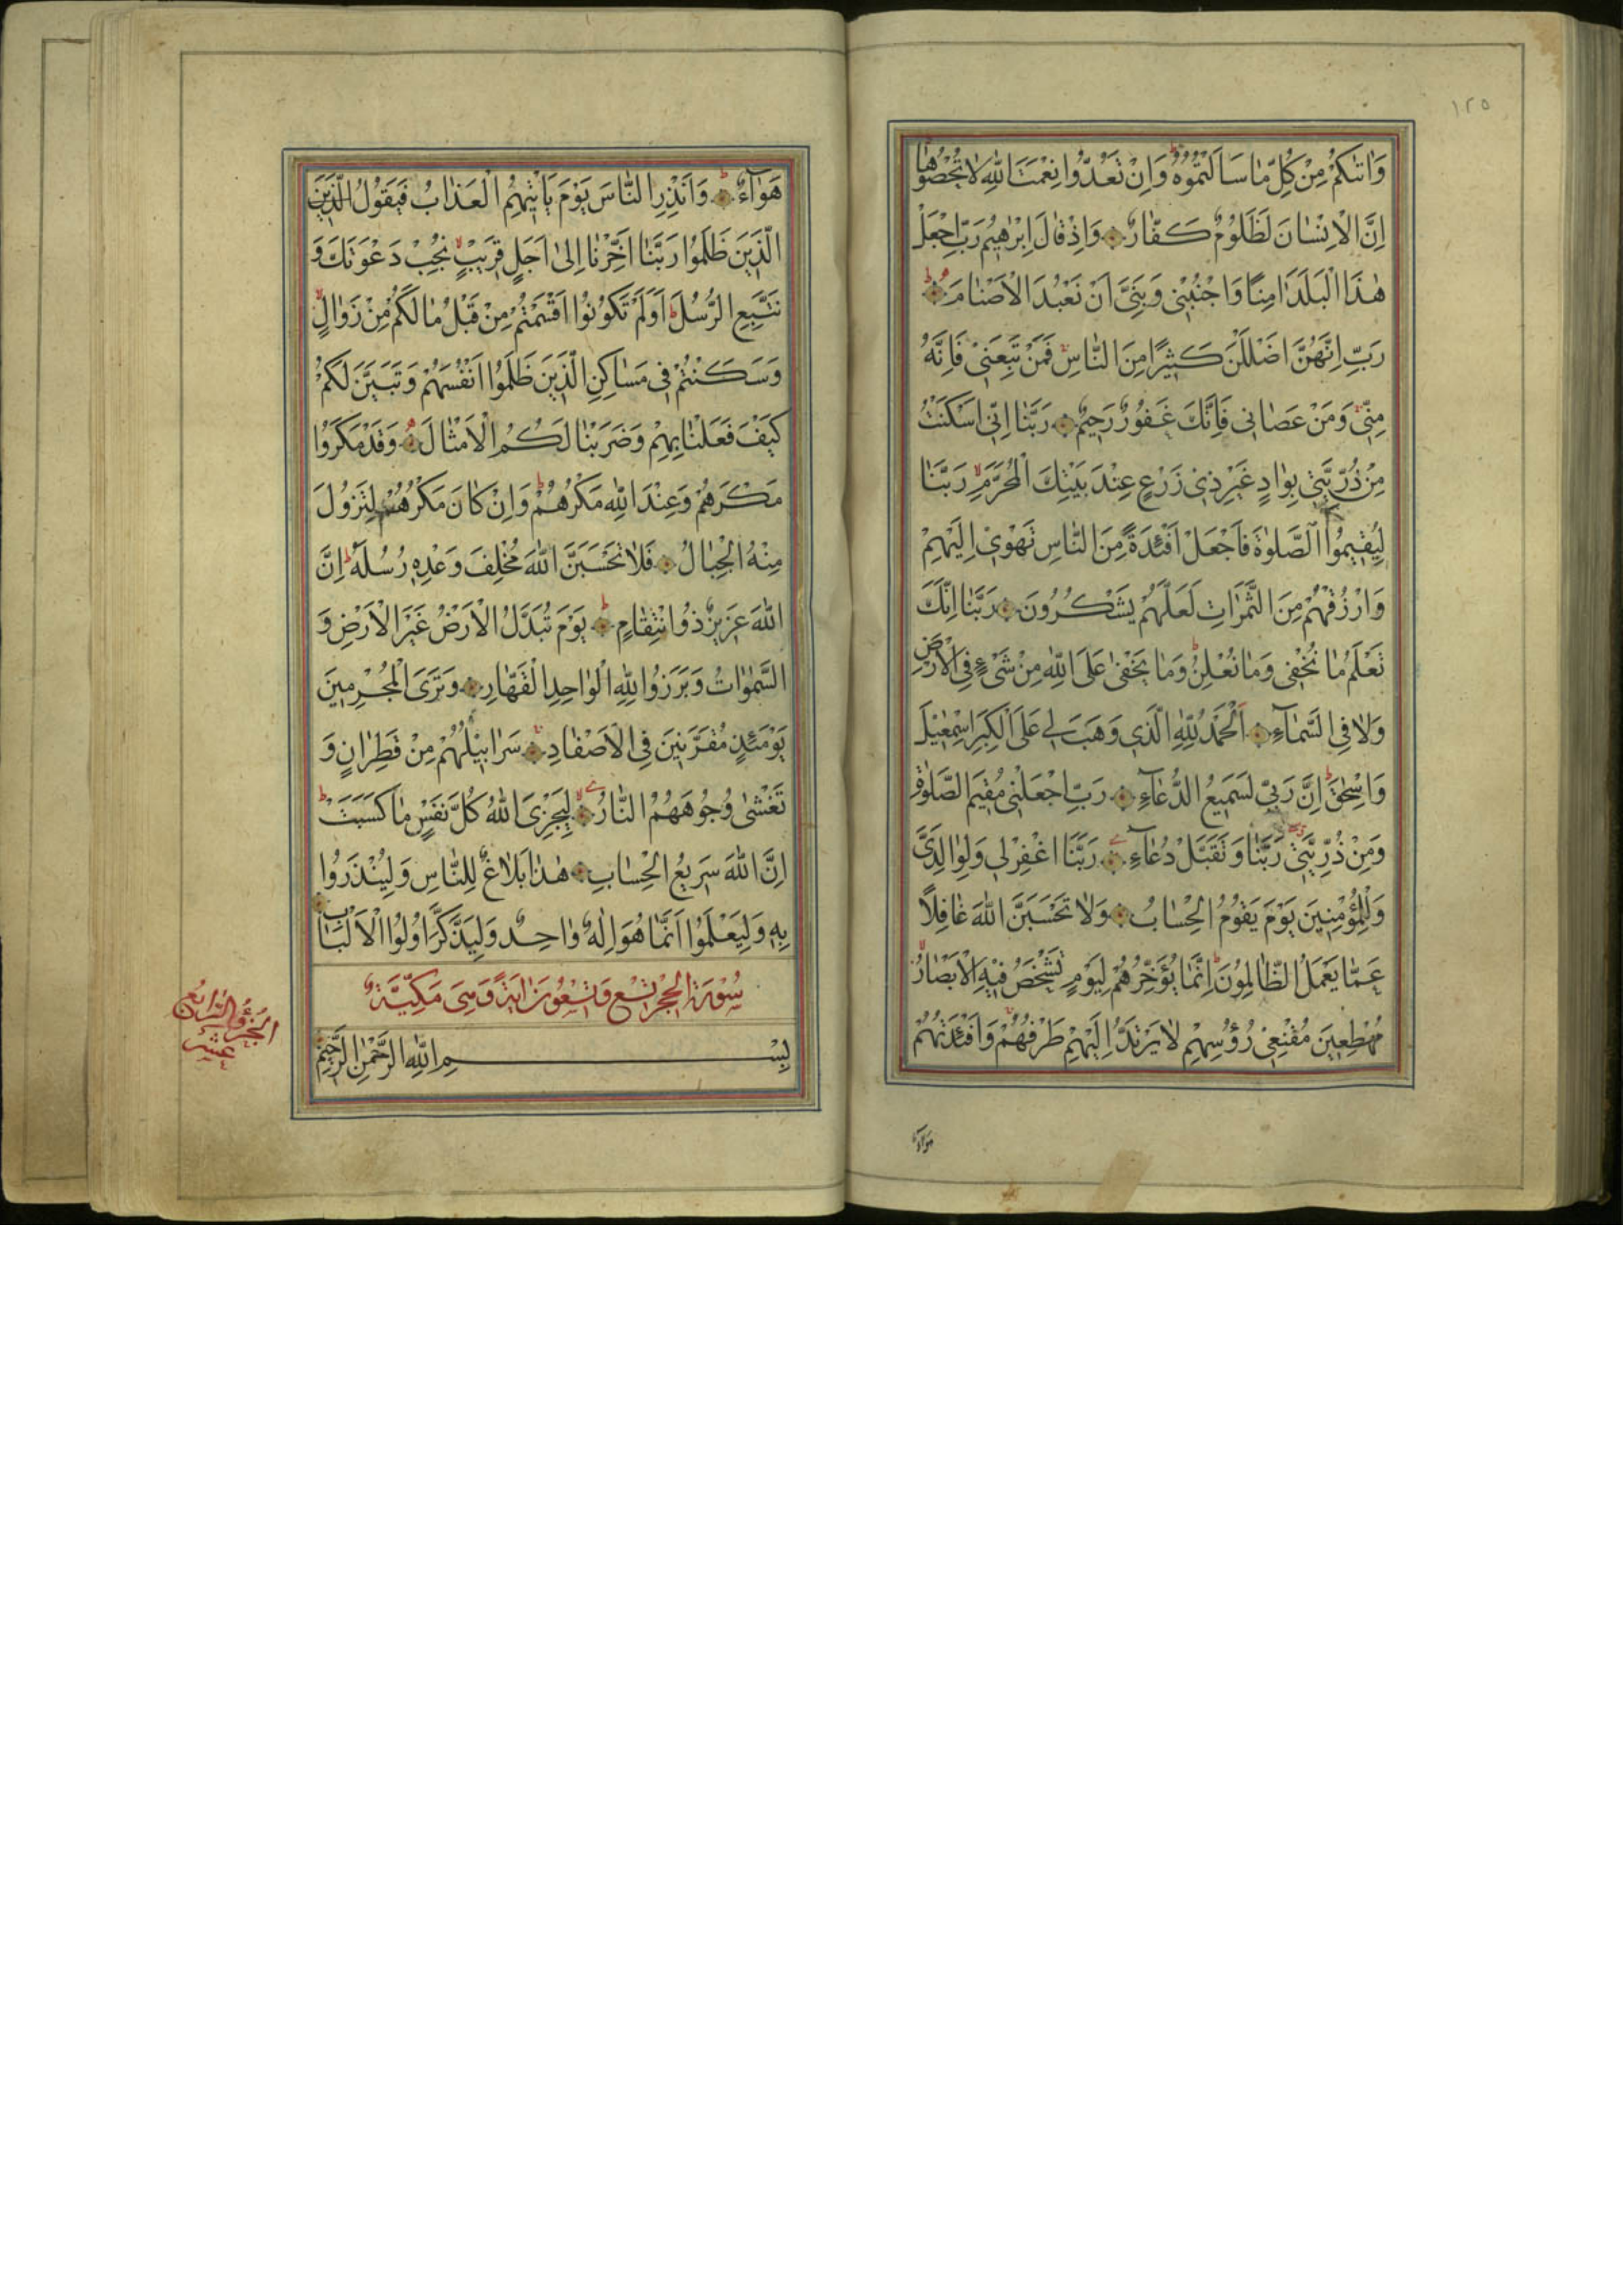 ١٢٥
وَاٰتٰىكُمْ مِنْ كُلِّ مٰا سَاَلْتُمُوهُ وَاِنْ تَعُدُّوا نِعْمَتَ اللّٰهِ لاٰ تُحْصُوهٰا
اِنَّ الْاِنْسٰانَ لَظَلُومٌ كَفّٰارٌ وَاِذْ قٰالَ اِبْرٰهِيمُ رَبِّ اجْعَلْ
هٰذَا الْبَلَدَ اٰمِنًا وَاجْنُبْنِي وَبَنِيَّ اَنْ نَعْبُدَ الْاَصْنٰامَ
رَبِّ اِنَّهُنَّ اَضْلَلْنَ كَثِيرًا مِنَ النّٰاسِ فَمَنْ تَبِعَنِي فَاِنَّهُ
مِنِّي وَمَنْ عَصٰانِي فَاِنَّكَ غَفُورٌ رَحِيمٌ رَبَّنٰا اِنِّي اَسْكَنْتُ
مِنْ ذُرِّيَّتِي بِوٰادٍ غَيْرِ ذِي زَرْعٍ عِنْدَ بَيْتِكَ الْمُحَرَّمِ رَبَّنٰا
لِيُقِيمُوا الصَّلٰوةَ فَاجْعَلْ اَفْئِدَةً مِنَ النّٰاسِ تَهْوِي اِلَيْهِمْ
وَارْزُقْهُمْ مِنَ الثَّمَرٰاتِ لَعَلَّهُمْ يَشْكُرُونَ رَبَّنٰا اِنَّكَ
تَعْلَمُ مٰا نُخْفِي وَمٰا نُعْلِنُ وَمٰا يَخْفٰى عَلَى اللّٰهِ مِنْ شَيْءٍ فِي الْاَرْضِ
وَلاٰ فِي السَّمٰاءِ اَلْحَمْدُ لِلّٰهِ الَّذِي وَهَبَ لِي عَلَى الْكِبَرِ اِسْمٰعِيلَ
وَاِسْحٰقَ اِنَّ رَبِّي لَسَمِيعُ الدُّعٰاءِ رَبِّ اجْعَلْنِي مُقِيمَ الصَّلٰوةِ
وَمِنْ ذُرِّيَّتِي رَبَّنٰا وَتَقَبَّلْ دُعٰاءِ رَبَّنَا اغْفِرْ لِي وَلِوٰالِدَيَّ
وَلِلْمُؤْمِنِينَ يَوْمَ يَقُومُ الْحِسٰابُ وَلاٰ تَحْسَبَنَّ اللّٰهَ غٰافِلًا
عَمّٰا يَعْمَلُ الظّٰالِمُونَ اِنَّمٰا يُؤَخِّرُهُمْ لِيَوْمٍ تَشْخَصُ فِيهِ الْاَبْصٰارُ
مُهْطِعِينَ مُقْنِعِي رُؤُسِهِمْ لاٰ يَرْتَدُّ اِلَيْهِمْ طَرْفُهُمْ وَاَفْئِدَتُهُمْ
هَوٰاءٌ
هَوٰاءٌ وَاَنْذِرِ النّٰاسَ يَوْمَ يَاْتِيهِمُ الْعَذٰابُ فَيَقُولُ الَّذِينَ
الَّذِينَ ظَلَمُوا رَبَّنٰا اَخِّرْنٰا اِلىٰ اَجَلٍ قَرِيبٍ نُجِبْ دَعْوَتَكَ وَ
نَتَّبِعِ الرُّسُلَ اَوَلَمْ تَكُونُوا اَقْسَمْتُمْ مِنْ قَبْلُ مٰا لَكُمْ مِنْ زَوٰالٍ
وَسَكَنْتُمْ فِي مَسٰاكِنِ الَّذِينَ ظَلَمُوا اَنْفُسَهُمْ وَتَبَيَّنَ لَكُمْ
كَيْفَ فَعَلْنٰا بِهِمْ وَضَرَبْنٰا لَكُمُ الْاَمْثٰالَ وَقَدْ مَكَرُوا
مَكْرَهُمْ وَعِنْدَ اللّٰهِ مَكْرُهُمْ وَاِنْ كٰانَ مَكْرُهُمْ لِتَزُولَ
مِنْهُ الْجِبٰالُ فَلاٰ تَحْسَبَنَّ اللّٰهَ مُخْلِفَ وَعْدِهِ رُسُلَهُ اِنَّ
اللّٰهَ عَزِيزٌ ذُو انْتِقٰامٍ يَوْمَ تُبَدَّلُ الْاَرْضُ غَيْرَ الْاَرْضِ وَ
السَّمٰوٰاتُ وَبَرَزُوا لِلّٰهِ الْوٰاحِدِ الْقَهّٰارِ وَتَرَى الْمُجْرِمِينَ
يَوْمَئِذٍ مُقَرَّنِينَ فِي الْاَصْفٰادِ سَرٰابِيلُهُمْ مِنْ قَطِرٰانٍ وَ
تَغْشٰى وُجُوهَهُمُ النّٰارُ لِيَجْزِيَ اللّٰهُ كُلَّ نَفْسٍ مٰا كَسَبَتْ
اِنَّ اللّٰهَ سَرِيعُ الْحِسٰابِ هٰذٰا بَلاٰغٌ لِلنّٰاسِ وَلِيُنْذَرُوا
بِهِ وَلِيَعْلَمُوا اَنَّمٰا هُوَ اِلٰهٌ وٰاحِدٌ وَلِيَذَّكَّرَ اُولُوا الْاَلْبٰابِ
سُورَةُ الْحِجْرِ تِسْعٌ وَتِسْعُونَ اٰيَةً وَهِيَ مَكِّيَّةٌ
بِسْمِ اللّٰهِ الرَّحْمٰنِ الرَّحِيمِ
الجُزْءُ الرّٰابِعُ
عَشَرَ